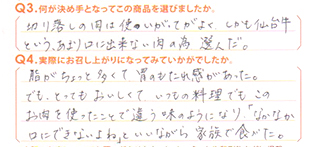 Q3.何が決め手となってこの商品を選びましたか。
切り落しの肉は使い勝手がよく しかも仙台牛
という、あまり口に出来ない肉の為 選んだ。
Q4.実際にお召し上がりになってみていかがでしたか。
脂がちょっと多くて 胃のもたれ感があった。
でも、とっても おいしくて いつもの料理でも この
お肉を使ったことで違う味のようになり「なかなか
口にできないよね」といいながら 家族で食べた。